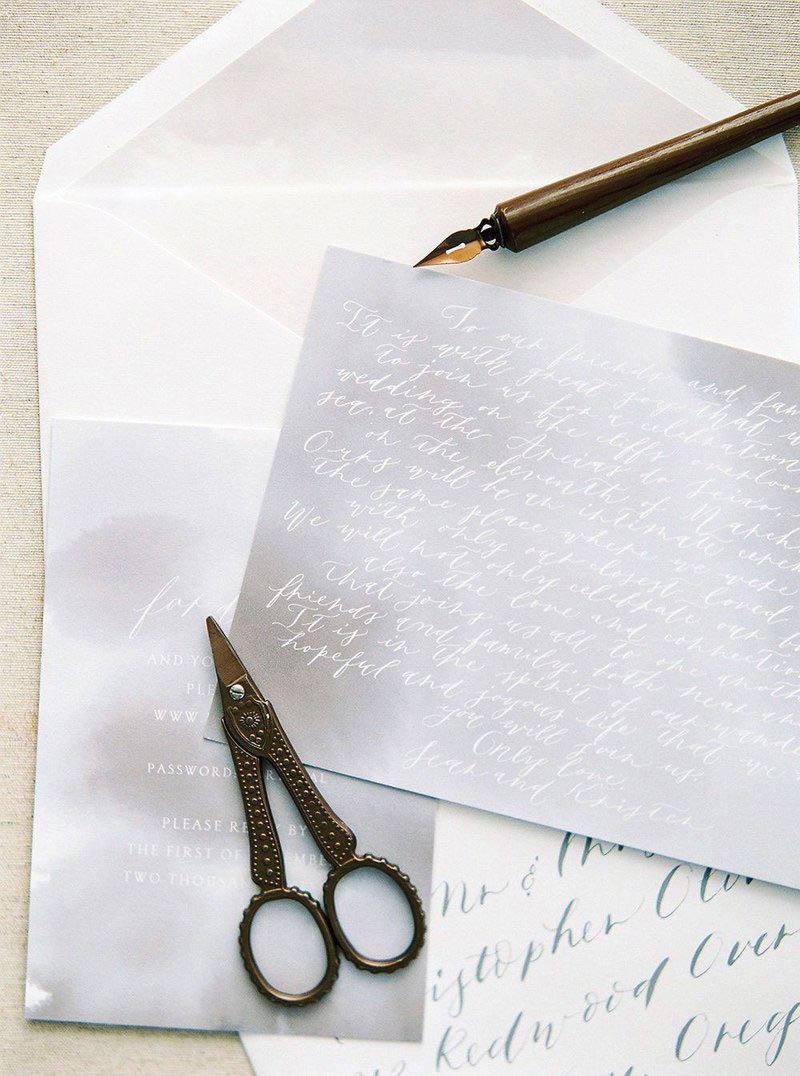 To our friends and fam
It is with great joy that w
to join us for a celebration
wedding on the cliffs overloo
sea, at the Areias do Seixo,
on the eleventh of March
Ours will be an intimate cerem
the same place where we were
with only our closest loved
We will not only celebrate our
also the love and connection
that joins us all to one anoth
friends and family, both near an
It is in the spirit of our
hopeful and joyous life that we
you will join us.
Only love,
Sean and Kristen
AND YO
PLE
WWW.
PASSWORD
PLEASE RE BY
THE FIRST OF MBE
TWO THOUSAN
Mr &
istopher Oli
Redwood Over
Oreg